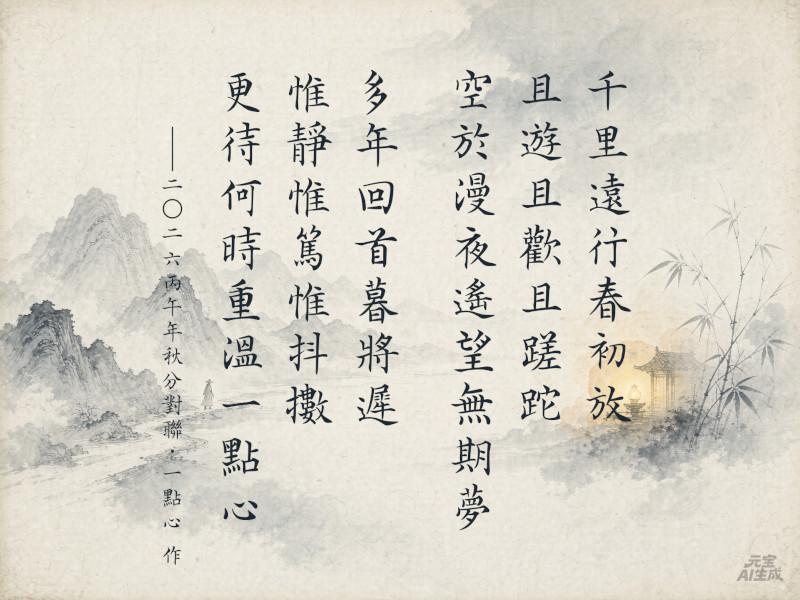 千里遠行春初放
且遊且歡且蹉跎
空於漫夜遙望無期夢
多年回首暮將遲
惟靜惟篤惟抖擻
更待何時重溫一點心
——二〇二六丙午年秋分對聯·一點心 作
元宝
AI生成